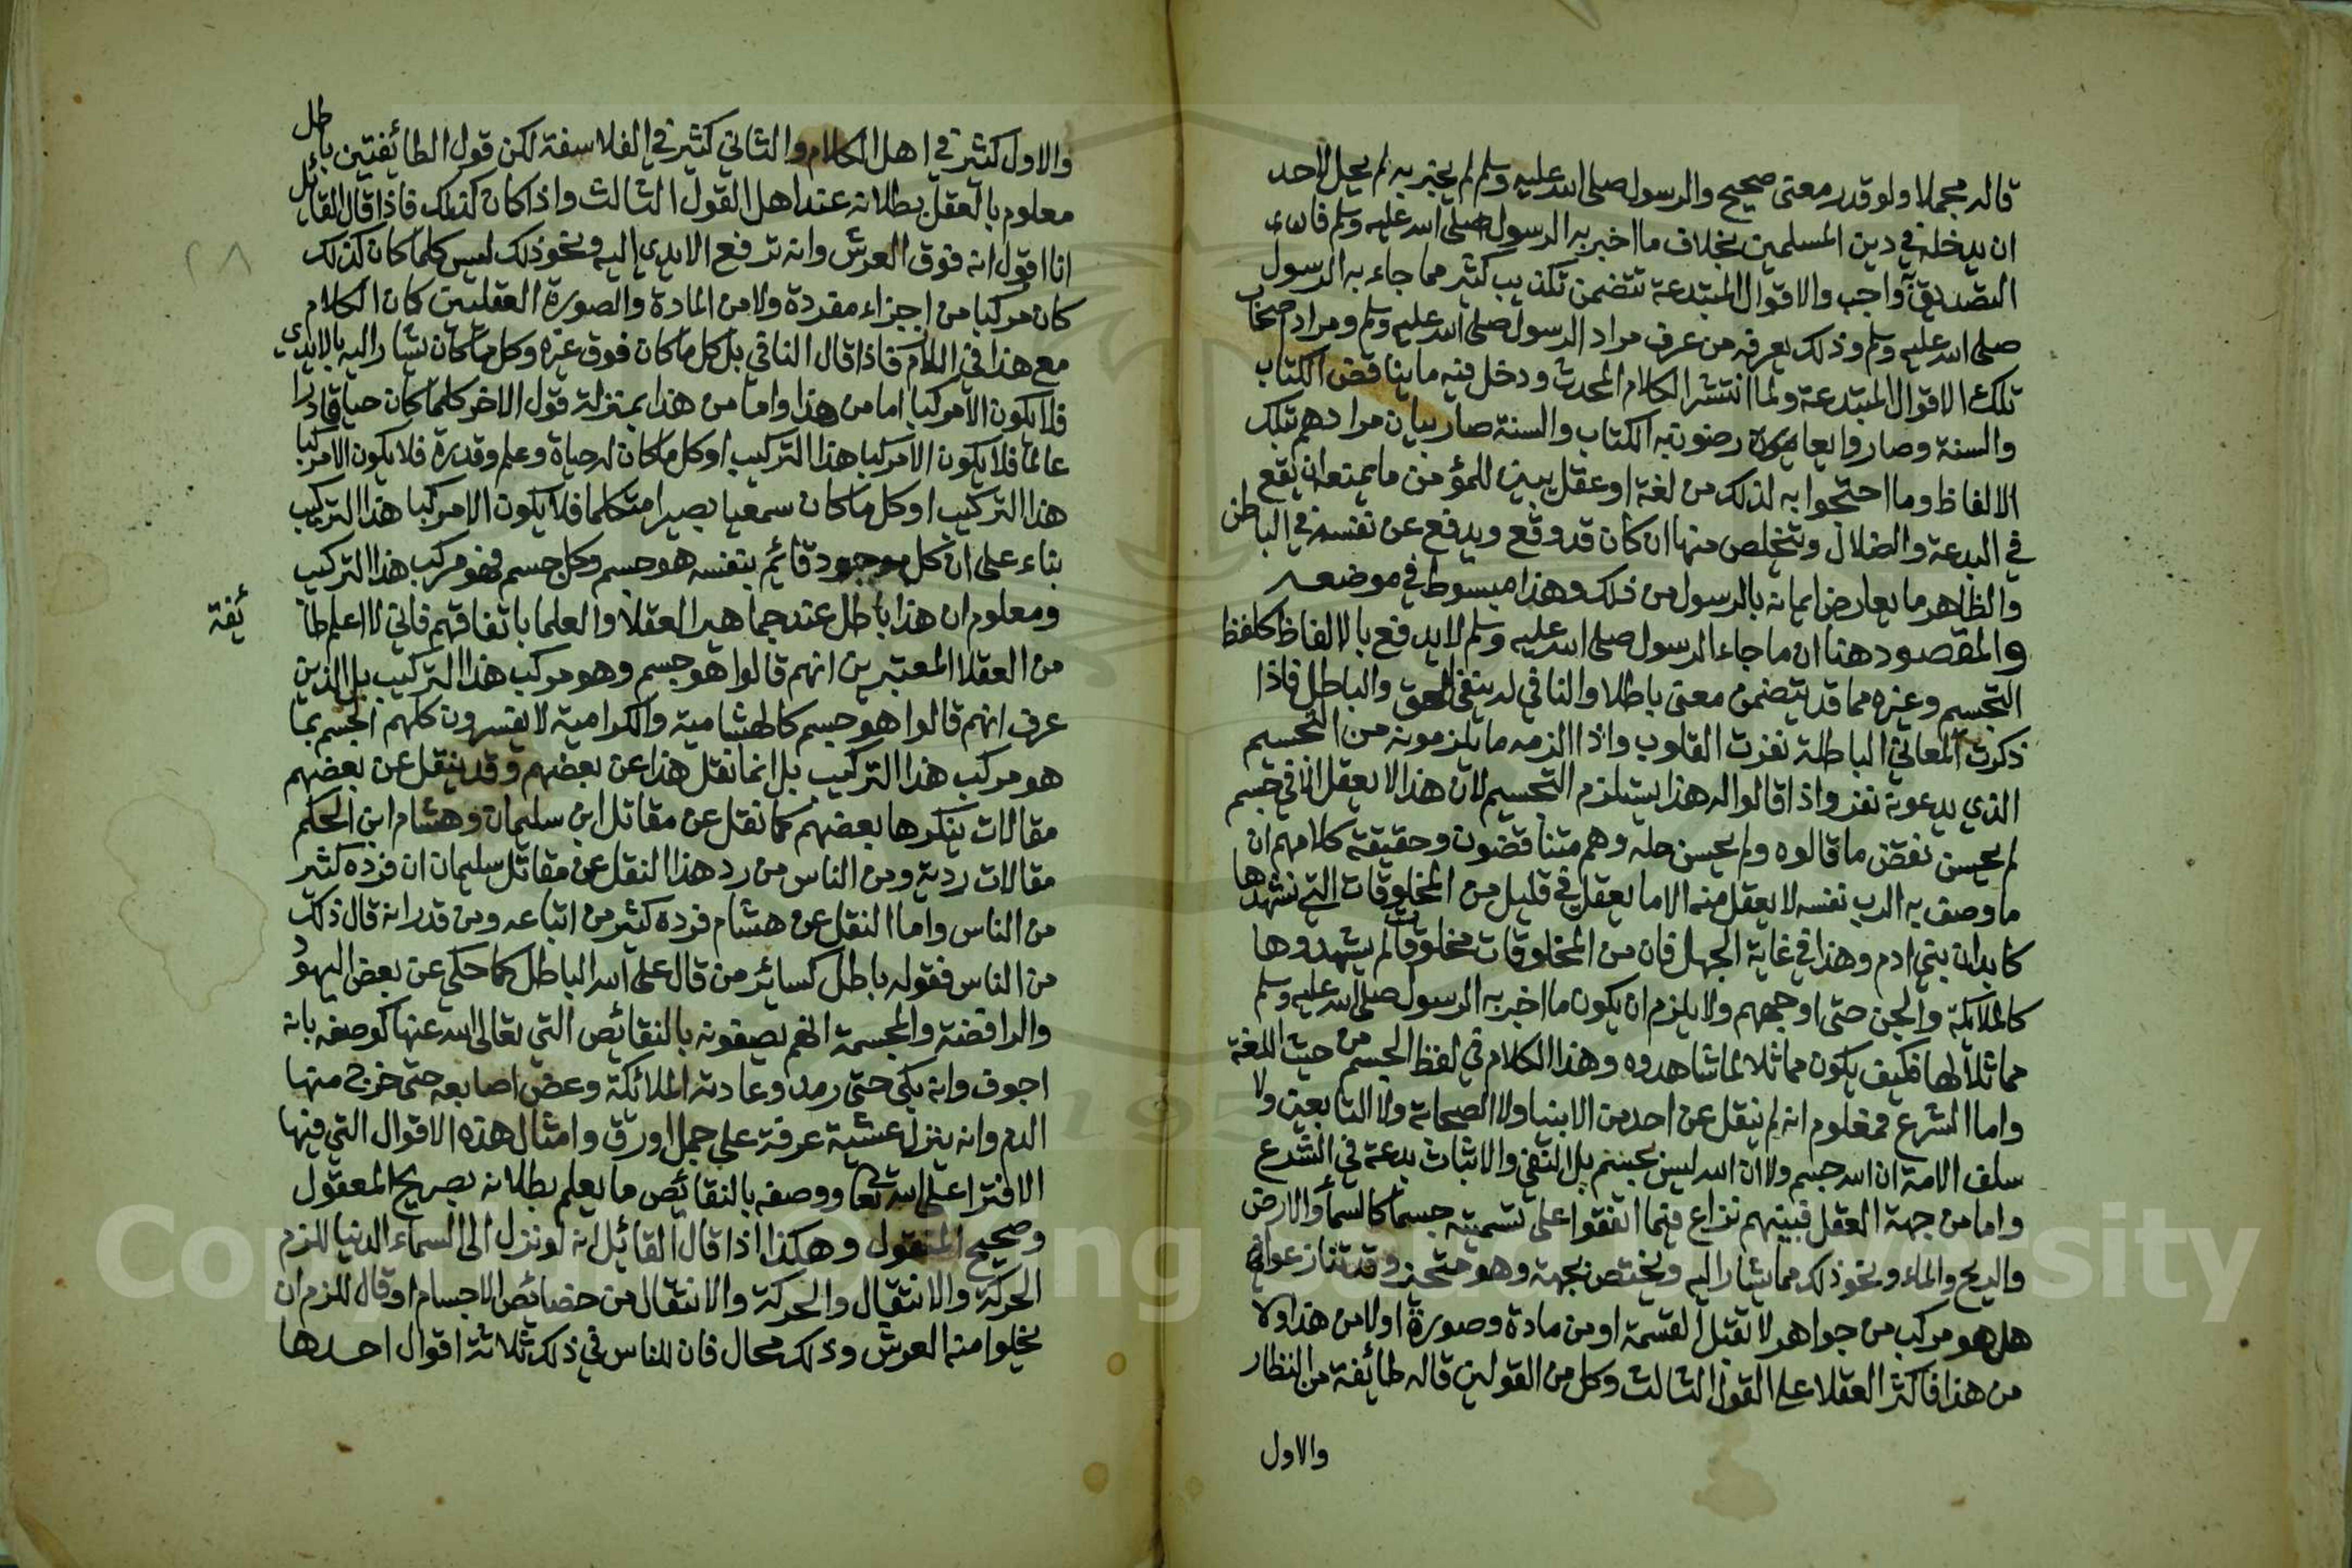 قاله مجملا ولو قدر معنى صحيح والرسول صلى الله عليه وسلم لم يخبر به لم يحل لاحد
ان يدخله في دين المسلمين بخلاف ما اخبر به الرسول صلى الله عليه وسلم فان
التصديق به واجب والاقوال المبتدعة تتضمن تكذيب كثير مما جاء به الرسول
صلى الله عليه وسلم وذلك يعرفه من عرف مراد الرسول صلى الله عليه وسلم ومراد اصحاب
تلك الاقوال المبتدعة ولما انتشر الكلام المحدث ودخل فيه ما يناقض الكتاب
والسنة وصاروا يعارضون به الكتاب والسنة صار بيان مرادهم بتلك
الالفاظ وما احتجوا به لذلك من لغة او عقل يبين للمؤمن ما يمنعه ان يقع
في البدعة والضلال ويتخلص منها ان كان قد وقع ويدفع عن نفسه في الباطن
والظاهر ما يعارض ايمانه بالرسول من ذلك وهذا مبسوط في موضعه
والمقصود هنا ان ما جاء الرسول صلى الله عليه وسلم لا يدفع بالالفاظ كلفظ
التجسيم وغيره مما قد يتضمن معنى باطلا والنافي له ينفي الحق والباطل فاذا
ذكرت المعاني الباطلة نفرت القلوب واذا الزمه ما يلزمونه من التجسيم
الذي يدعونه نفر واذا قالوا له هذا يستلزم التجسيم لان هذا لا يعقل الا في جسم
لم يحسن نقض ما قالوه ولم يحسن حله وهم متناقضون وحقيقة كلامهم ان
ما وصف به الرب نفسه لا يعقل منه الا ما يعقل في قليل من المخلوقات التي نشهدها
كابدان بني ادم وهذا في غاية الجهل فان من المخلوقات مخلوقات لم يشهدوها
كالملائكة والجن حتى ارواحهم ولا يلزم ان يكون ما اخبر به الرسول صلى الله عليه وسلم
مماثلا لها فكيف يكون مماثلا لما شاهدوه وهذا الكلام في لفظ الجسم من حيث اللغة
واما الشرع فمعلوم انه لم ينقل عن احد من الانبيا ولا الصحابة ولا التابعين ولا
سلف الامة ان الله جسم ولا ان الله ليس بجسم بل النفي والاثبات بدعة في الشرع
واما من جهة العقل فبينهم نزاع فيما اتفقوا على تسميته جسما كالسماء والارض
والريح والماء ونحو ذلك مما يشار اليه ويختص بجهة وهو متحيز وقد تنازعوا
هل هو مركب من جواهر لا تقبل القسمة او من مادة وصورة او لا من هذا ولا
من هذا فاكثر العقلا على القول الثالث وكل من القولين قاله طائفة من النظار
والاول
والاول كثير في اهل الكلام والثاني كثير في الفلاسفة لكن قول الطائفتين باطل
معلوم بالعقل بطلانه عند اهل القول الثالث واذا كان كذلك فاذا قال القائل
انا اقول انه فوق العرش وانه ترفع الايدي اليه ونحو ذلك ليس كلما كان كذلك
كان مركبا من اجزاء مفردة ولا من المادة والصورة العقليين كان الكلام
مع هذا في التلازم فاذا قال النافي بل كل ما كان فوق غيره وكل ما كان يشار اليه بالايدي
فلا يكون الا مركبا اما من هذا واما من هذا بمنزلة قول الاخر كلما كان حيا قادرا
عالما فلا يكون الا مركبا هذا التركيب او كل ما كان له حياة وعلم وقدرة فلا يكون الا مركبا
هذا التركيب او كل ما كان سميعا بصيرا متكلما فلا يكون الا مركبا هذا التركيب
بناء على ان كل موجود قائم بنفسه هو جسم وكل جسم فهو مركب هذا التركيب
ومعلوم ان هذا باطل عند جماهير العقلا والعلما باتفاقهم فاني لا اعلم طا
ئفة
من العقلا المعتبرين انهم قالوا هو جسم وهو مركب هذا التركيب بل الذين
عرف انهم قالوا هو جسم كالهشامية والكرامية لا يفسرون كلهم الجسم بما
هو مركب هذا التركيب بل انما نقل هذا عن بعضهم وقد ينقل عن بعضهم
مقالات ينكرها بعضهم كما نقل عن مقاتل ابن سليمان وهشام ابن الحكم
مقالات ردية ومن الناس من رد هذا النقل عن مقاتل سليمان ان فرده كثير
من الناس واما النقل عن هشام فرده كثير من اتباعه ومن قدر انه قال ذلك
من الناس فقوله باطل كسائر من قال على الله الباطل كما حكي عن بعض اليهود
والرافضة والمجسمة انهم يصفونه بالنقائص التي تعالى الله عنها كوصفه بانه
اجوف وانه بكى حتى رمد وعادته الملائكة وعض اصابعه حتى خرج منها
الدم وانه ينزل عشية عرفة على جمل اورق وامثال هذه الاقوال التي فيها
الافترا على الله تعا ووصفه بالنقائص ما يعلم بطلانه بصريح المعقول
وصحيح المنقول وهكذا اذا قال القائل انه لو نزل الى السماء الدنيا للزم
الحركة والانتقال والحركة والانتقال من خصائص الاجسام او قال للزم ان
يخلوا منه العرش وذلك محال فان للناس في ذلك ثلاثة اقوال احدها
٢٨